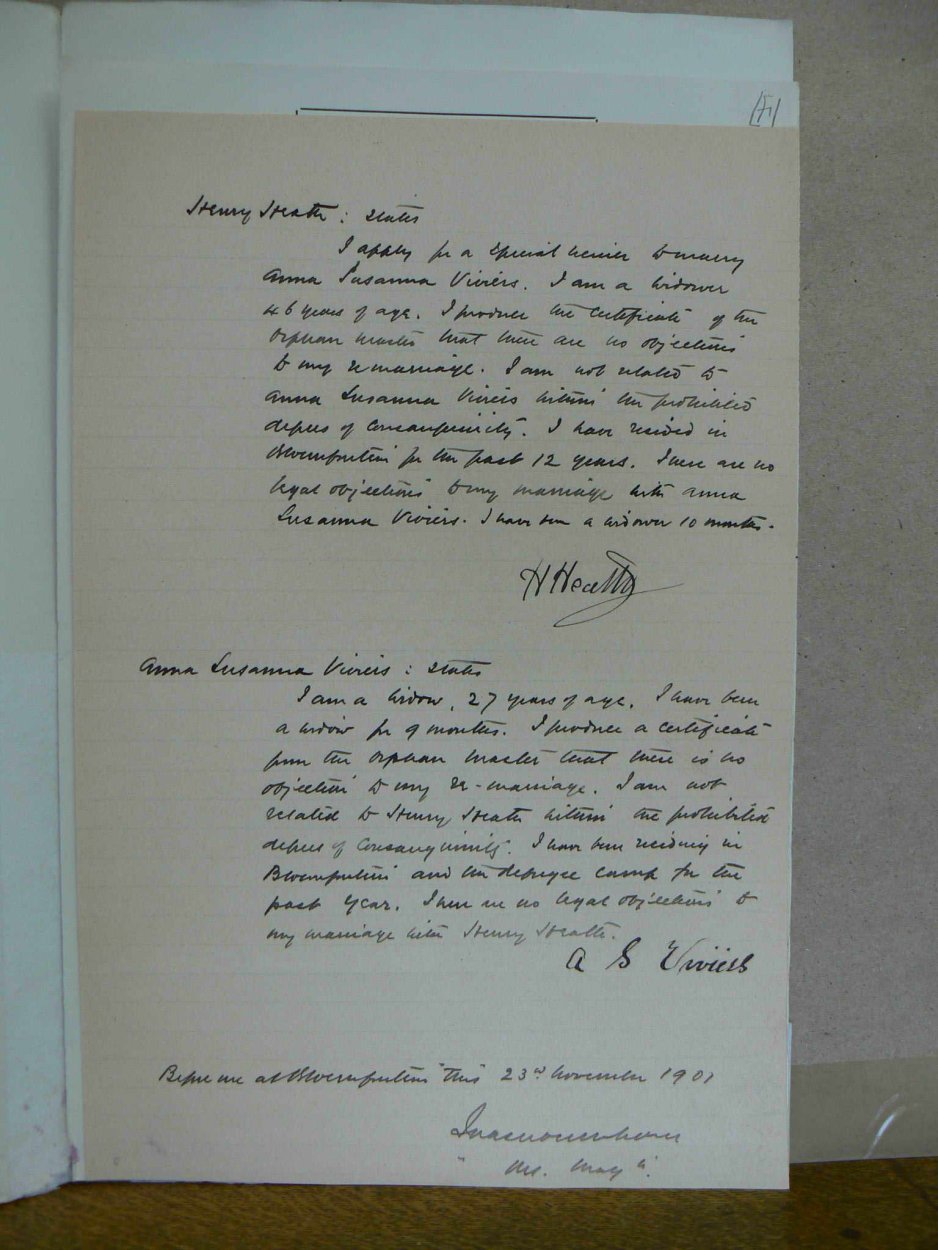 Henry Heath : states
I apply for a special licence to marry
Anna Susanna Viviers. I am a widower
46 years of age. I produce the certificate of the
Orphan Master that there are no objections
to my re marriage. I am not related to
Anna Susanna Viviers within the prohibited
degrees of Consanguinity. I have resided in
Bloemfontein for the past 12 years. There are no
legal objections to my marriage with Anna
Susanna Viviers. I have been a widower 10 months.
H Heath
Anna Susanna Viviers : states
I am a widow, 27 years of age. I have been
a widow for 9 months. I produce a certificate
from the Orphan Master that there is no
objection to my re-marriage. I am not
related to Henry Heath within the prohibited
degrees of Consanguinity. I have been residing in
Bloemfontein and the refugee camp for the
past year. There are no legal objections to
my marriage with Henry Heath.
A S Viviers
Before me at Bloemfontein this 23rd November 1901